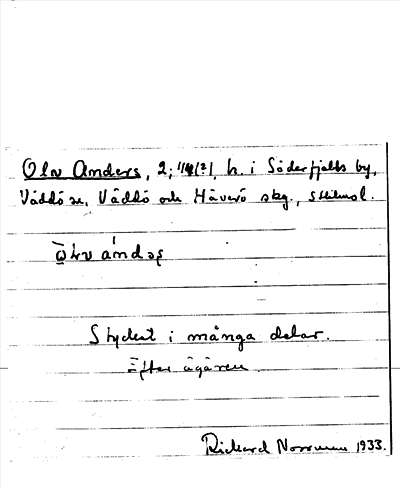 Oln Anders, 2; 114(?), h. i Söderfjälls by,
Väddö sn, Väddö och Häverö skg., Sthlms l.
Styckat i många delar.
Efter ägaren.
Richard Norrman 1933.